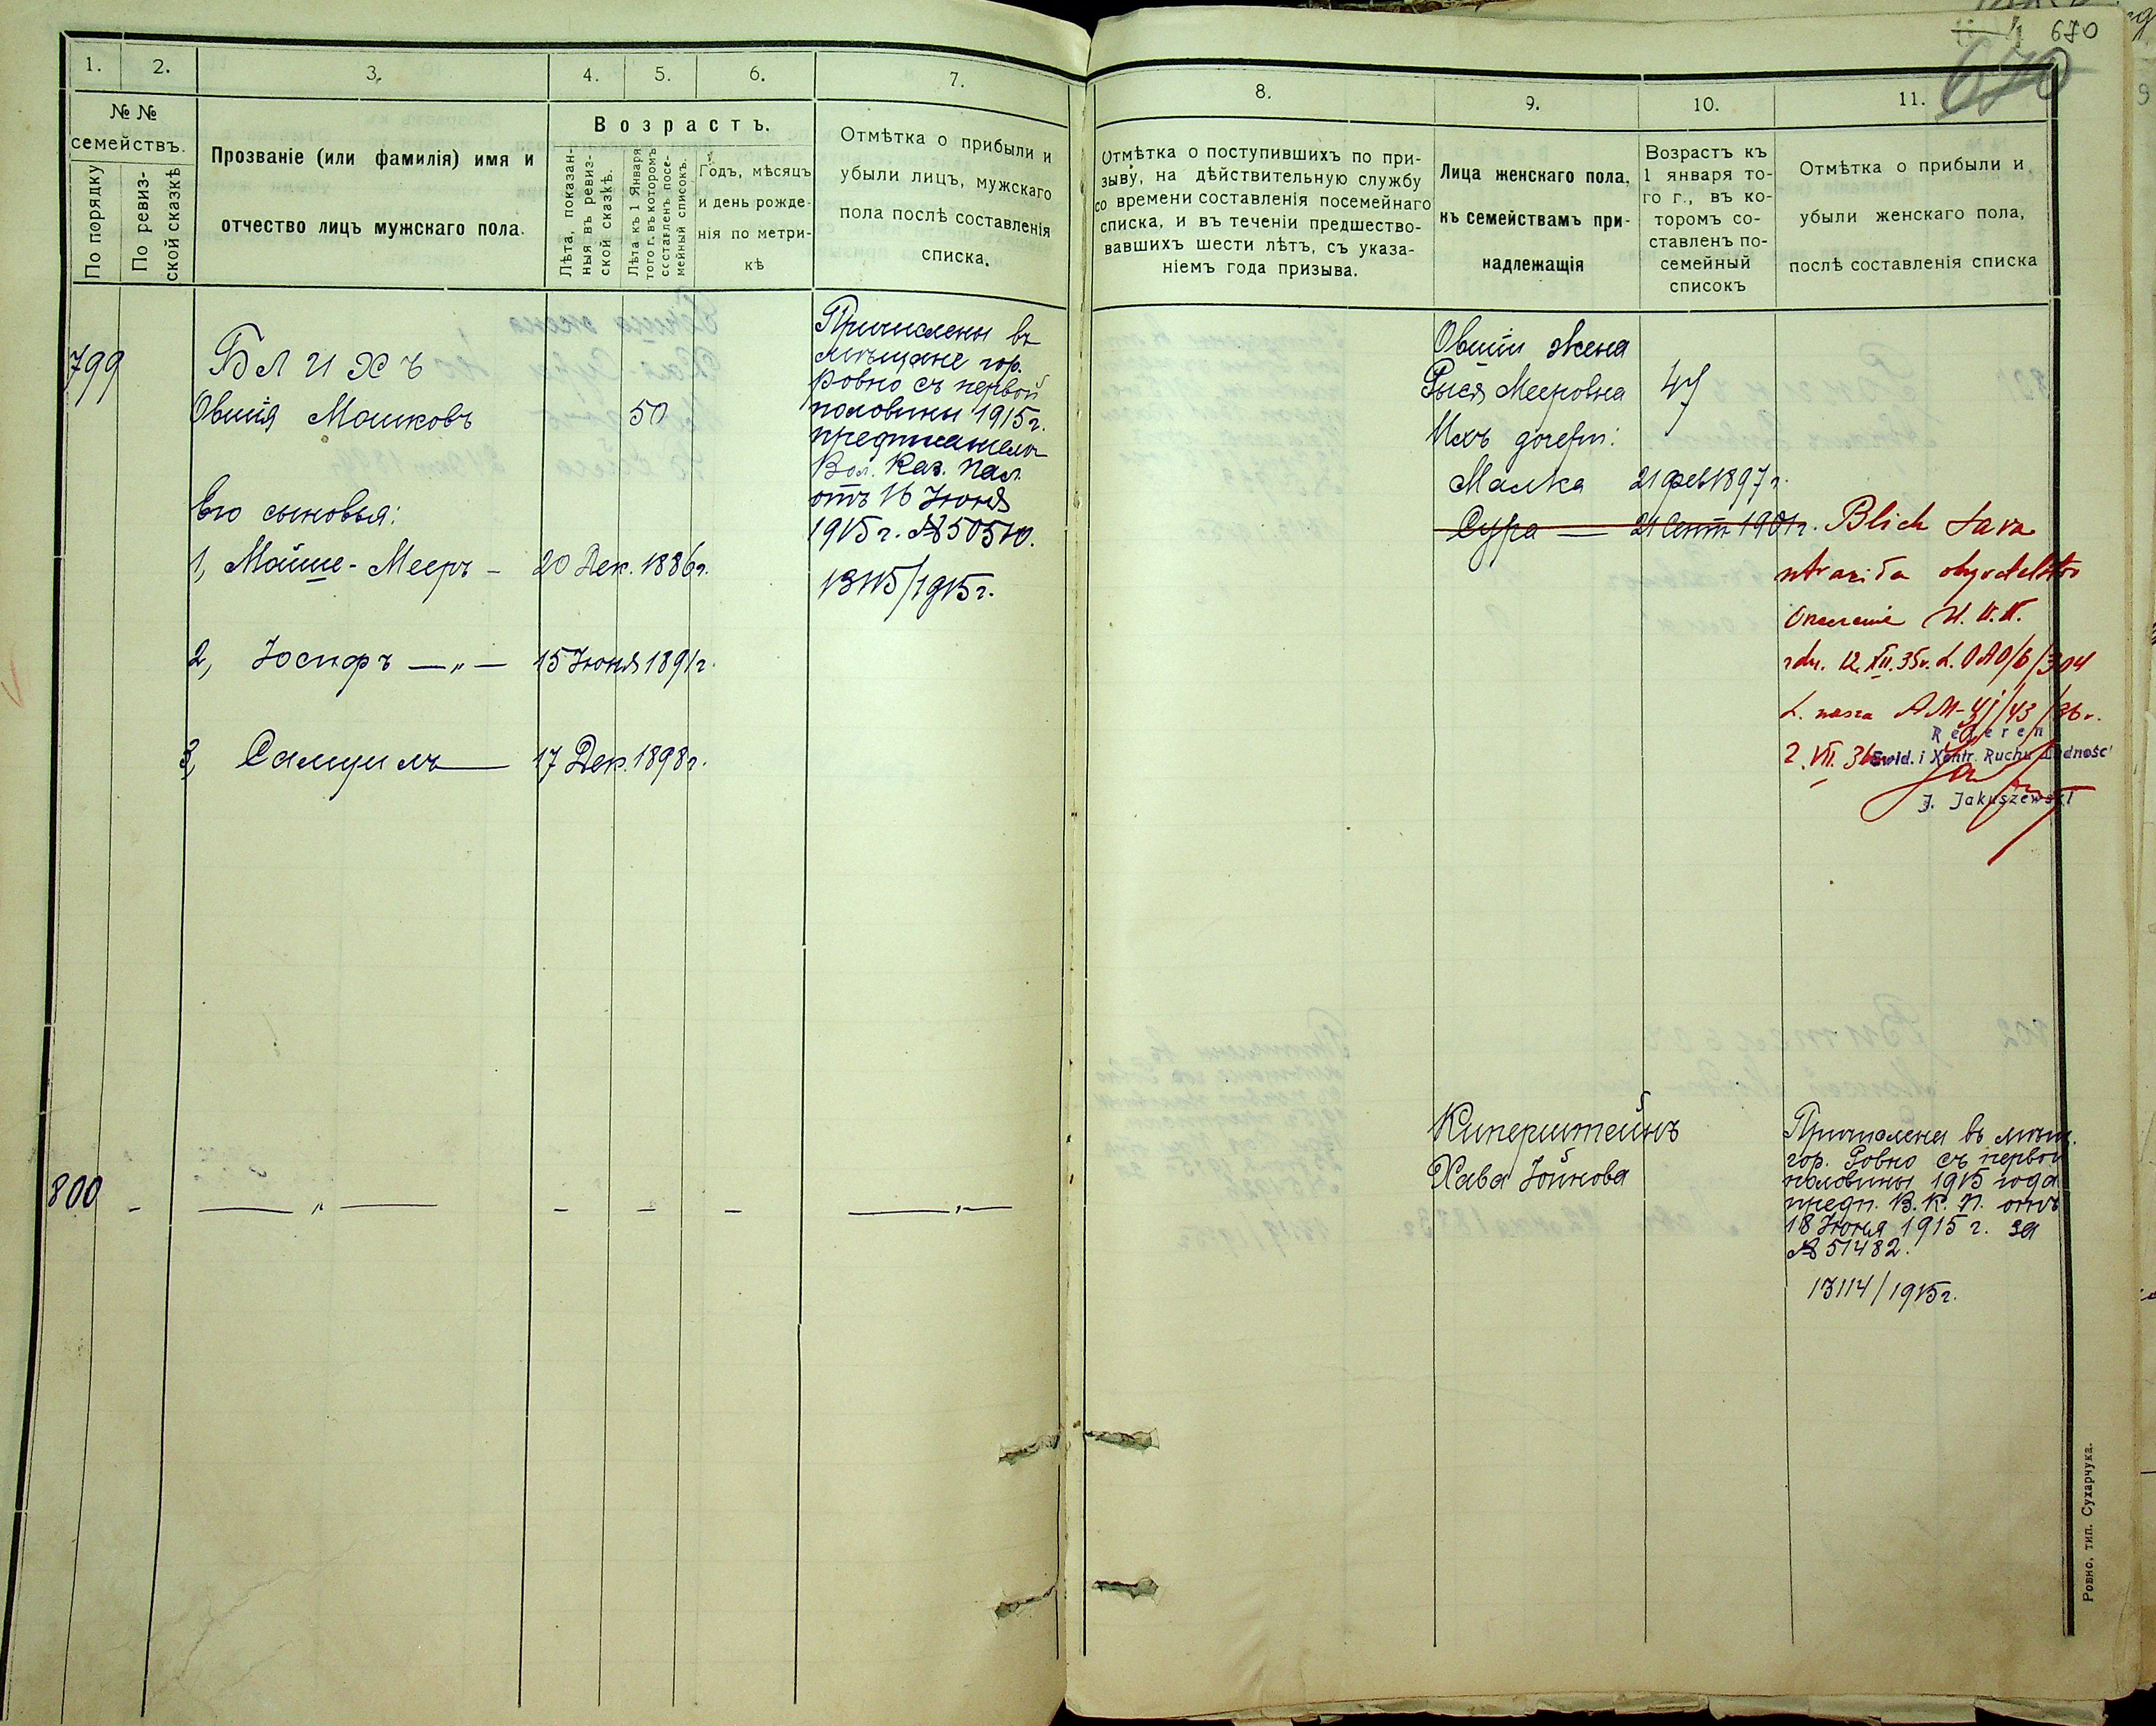 670
670
1.
2.
3.
4.
5.
6.
7.
№ №
семействъ.
По порядку
По ревиз-
ской сказкѣ
Прозваніе (или фамилія) имя и
отчество лицъ мужскаго пола.
Возрастъ.
Лѣта, показан-
ныя въ ревиз-
ской сказкѣ.
Лѣта къ 1 Января
того г. въ которомъ
составленъ посе-
мейный списокъ.
Годъ, мѣсяцъ
и день рожде-
нія по метри-
кѣ
Отмѣтка о прибыли и
убыли лицъ, мужскаго
пола послѣ составленія
списка.
799
Блихъ
Овшія Мошковъ 50
Его сыновья:
1, Мойше-Мееръ - 20 Дек. 1886г.
2, Іосифъ —„— 15 Іюня 1891г.
3, Самуилъ — 17 Дек. 1898г.
Причислены въ
мѣщане гор.
Ровно съ первой
половины 1915г.
Вол. Каз. Пал.
отъ 16 Іюня
1915г. № 50510.
13115/1915г.
800 - —„— - - - —„—
8.
9.
10.
11.
Отмѣтка о поступившихъ по при-
зыву, на дѣйствительную службу
со времени составленія посемейнаго
списка, и въ теченіи предшество-
вавшихъ шести лѣтъ, съ указа-
ніемъ года призыва.
Лица женскаго пола,
къ семействамъ при-
надлежащія
Возрастъ къ
1 января то-
го г., въ ко-
торомъ со-
ставленъ по-
семейный
списокъ
Отмѣтка о прибыли и
убыли женскаго пола,
послѣ составленія списка
Овшіи жена
Рыся Мееровна 47
Ихъ дочери:
Малка 21 фев 1897г.
Сура — 21 Сент. 1901г.
Blich Sara
utraciła obywatelstwo
U. W. W.
12.XII.35r.
L. nasza
2.VII.36
Referent
Ewid. i Kontr. Ruchu Ludności
J. Jakuszewski
Киперштейнъ
Хава Іойнова
Причислена въ мѣщ.
гор. Ровно съ первой
половины 1915 года
предп. В. К. П. отъ
18 Іюня 1915 г. за
№ 51482.
13114/1915г.
Ровно, тип. Сухарчука.